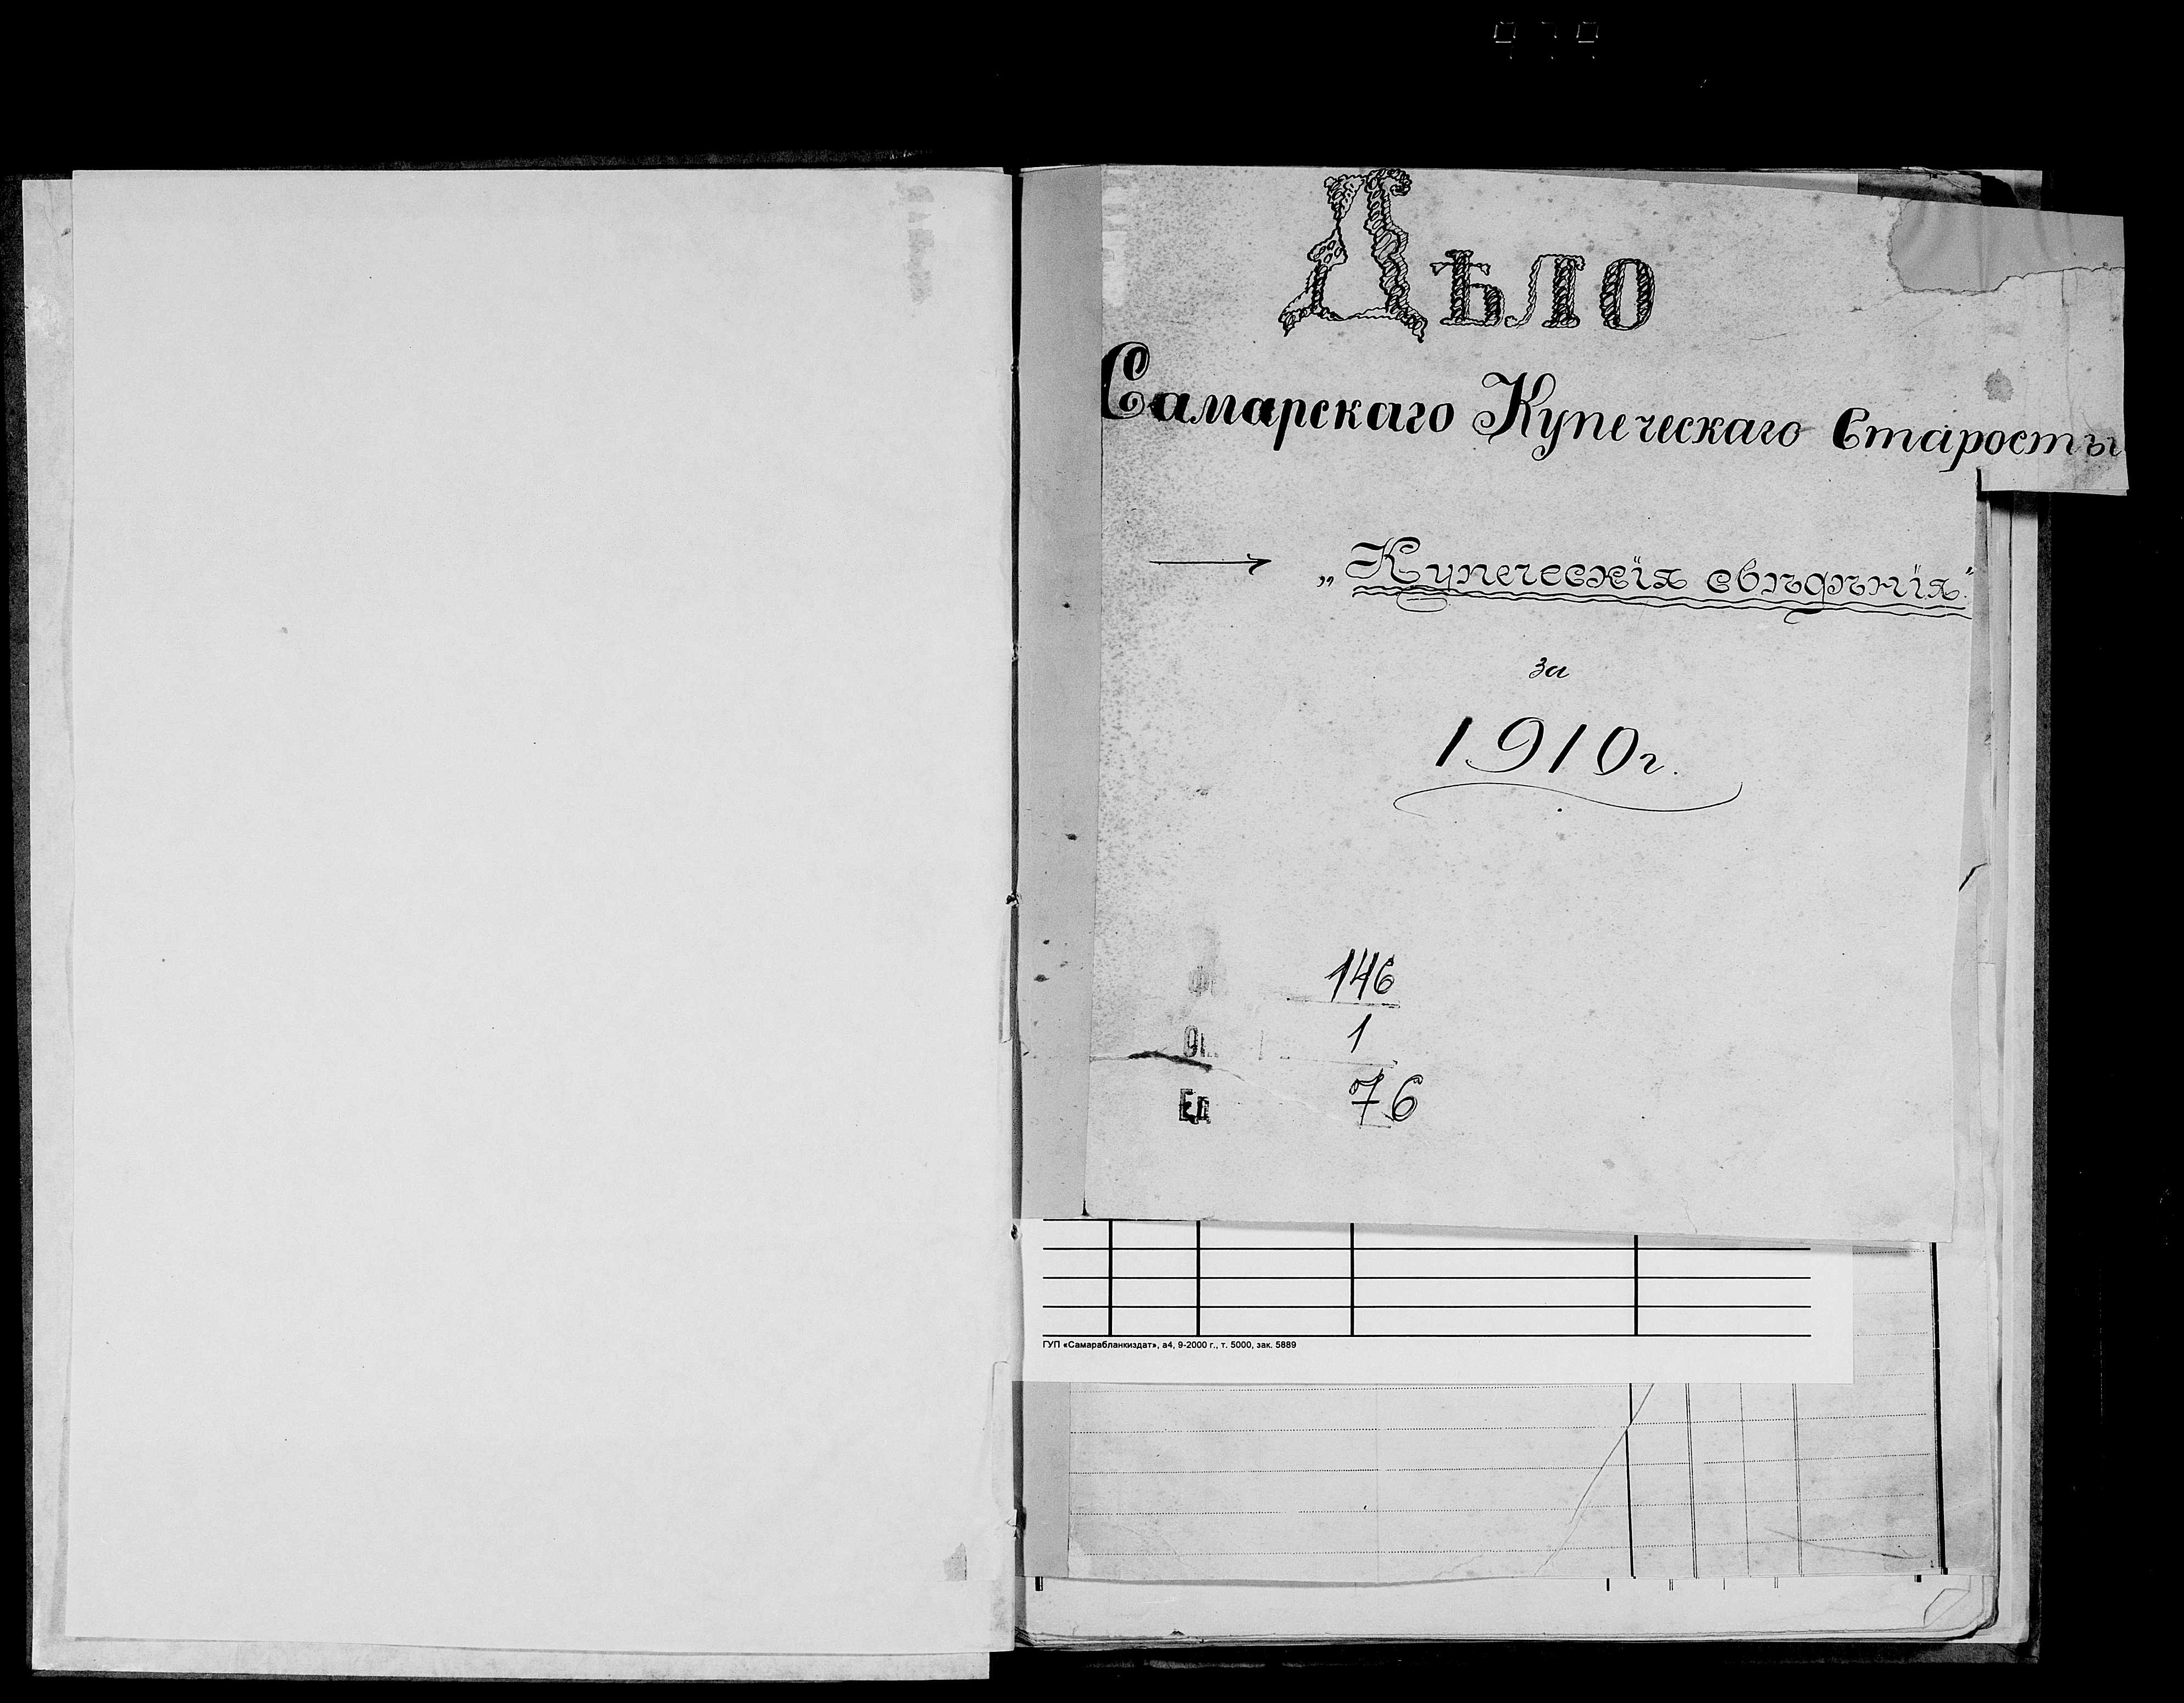 Дѣло
Самарскаго Купеческаго Старосты
„Купеческія свѣдѣнія“
за
1910г.
146
Оп. 1
Ед 76
ГУП «Самарабланкиздат», а4, 9-2000 г., т. 5000, зак. 5889